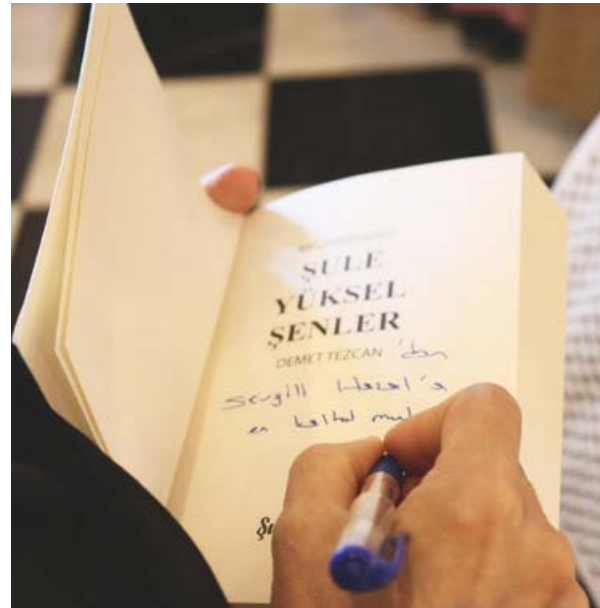 ŞULE
YÜKSEL
ŞENLER
DEMET TEZCAN 'dan
Sevgili Hazal'a
en kalbi